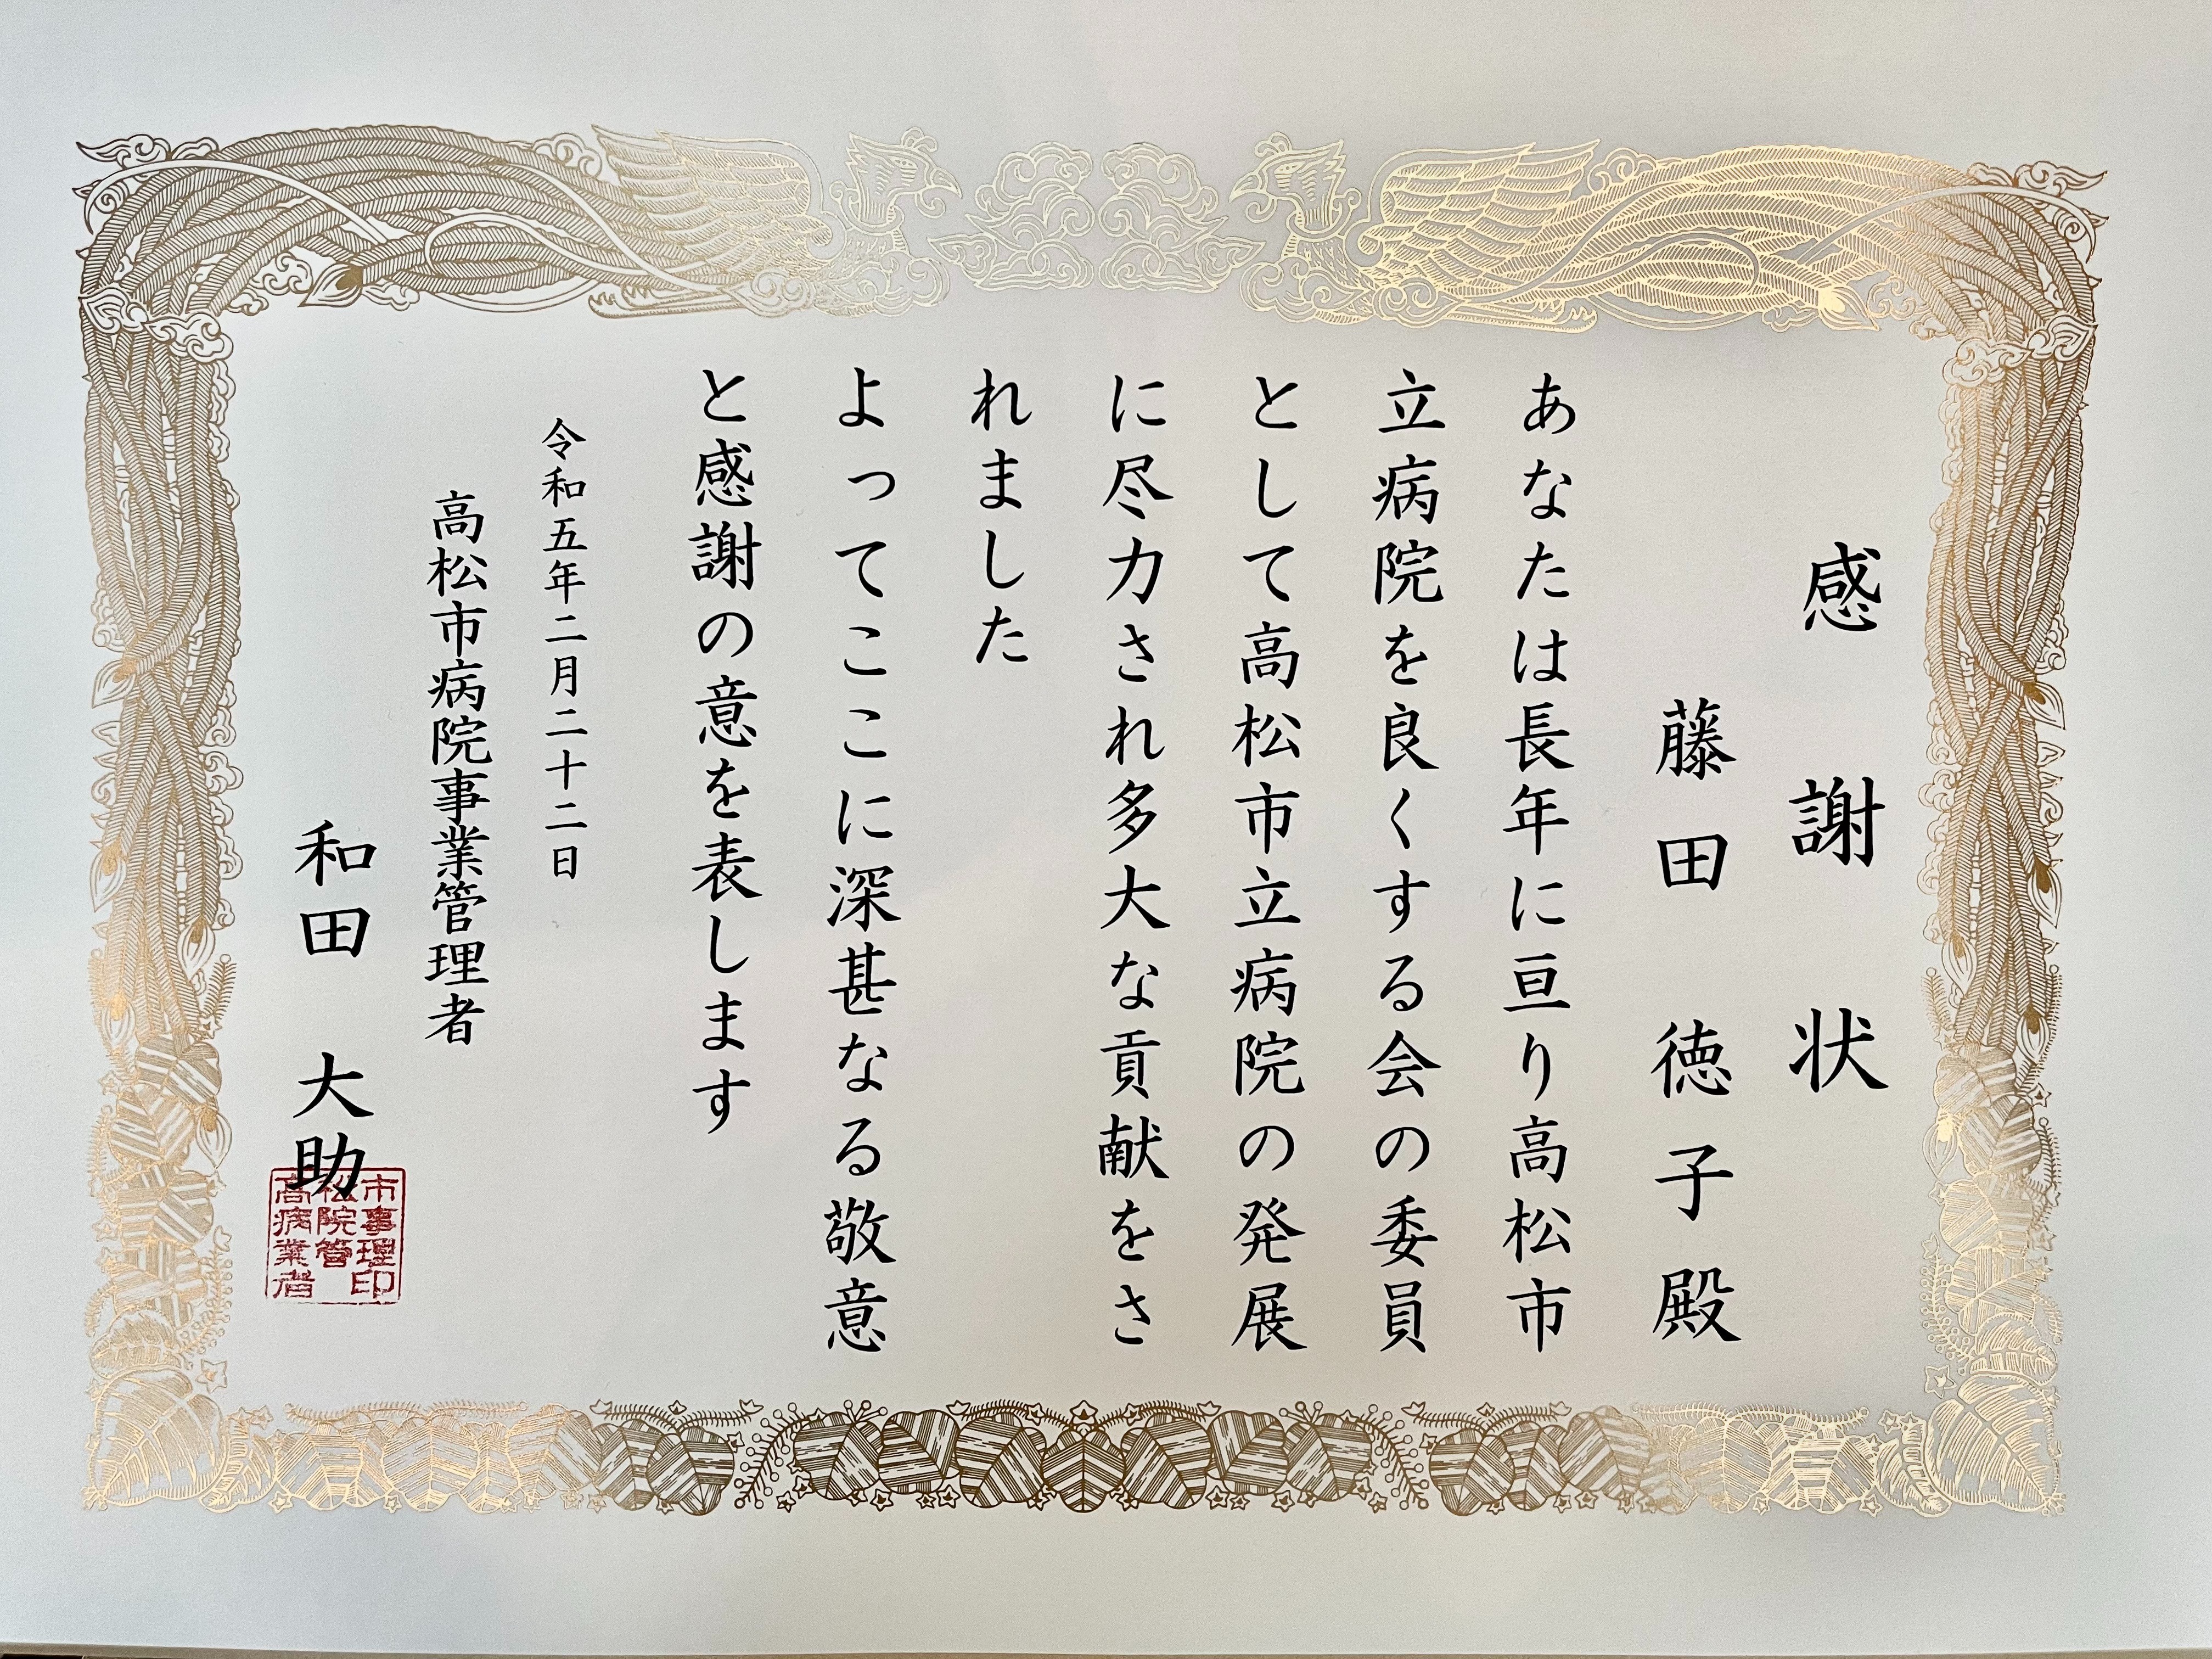 感謝状
藤田徳子殿
あなたは長年に亘り高松市
立病院を良くする会の委員
として高松市立病院の発展
に尽力され多大な貢献をさ
れました
よってここに深甚なる敬意
と感謝の意を表します
令和五年二月二十二日
高松市病院事業管理者
和田大助
高松市
病院事
業管理
者印